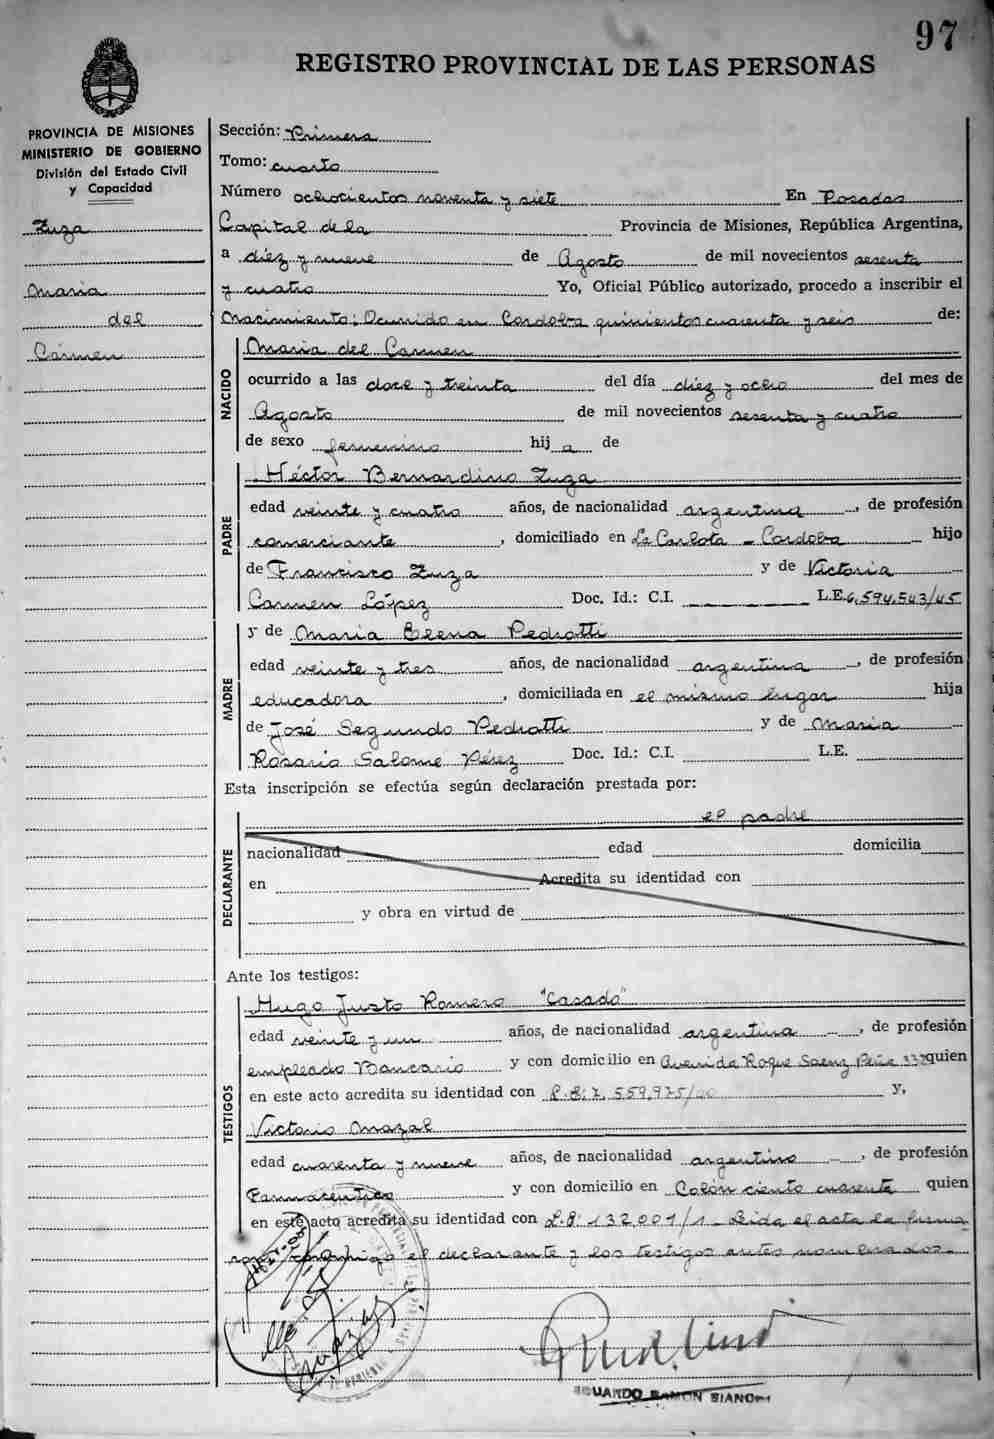 97
REGISTRO PROVINCIAL DE LAS PERSONAS
PROVINCIA DE MISIONES
MINISTERIO DE GOBIERNO
División del Estado Civil
y Capacidad
Zuza
Maria
del
Carmen
Sección: Primera
Tomo: cuarto
Número ochocientos noventa y siete En Posadas
Capital de la Provincia de Misiones, República Argentina,
a diez y nueve de Agosto de mil novecientos sesenta
y cuatro Yo, Oficial Público autorizado, procedo a inscribir el
Nacimiento; Ocurrido en Cordoba quinientos cuarenta y seis de:
NACIDO
Maria del Carmen
ocurrido a las doce y treinta del día diez y ocho del mes de
Agosto de mil novecientos sesenta y cuatro
de sexo femenino hij a de
PADRE
Héctor Bernardino Zuza
edad veinte y cuatro años, de nacionalidad argentina, de profesión
comerciante, domiciliado en La Carlota - Cordoba hijo
de Francisco Zuza y de Victoria
Carmen López Doc. Id.: C.I. L.E. 6,594,543/45
MADRE
y de Maria Elena Pedrotti
edad veinte y tres años, de nacionalidad argentina, de profesión
educadora, domiciliada en el mismo lugar hija
de José Segundo Pedrotti y de Maria
Rosario Salome Pérez Doc. Id.: C.I. L.E.
Esta inscripción se efectúa según declaración prestada por:
el padre
DECLARANTE
nacionalidad edad domicilia
en Acredita su identidad con
y obra en virtud de
Ante los testigos:
TESTIGOS
Hugo Justo Romero "Casado"
edad veinte y un años, de nacionalidad argentina, de profesión
empleado Bancario y con domicilio en Avenida Roque Saenz Peña quien
en este acto acredita su identidad con 7,559,975/ y,
Victorio Mazal
edad cuarenta y nueve años, de nacionalidad argentino, de profesión
Farmaceutico y con domicilio en Colón ciento cuarenta quien
en este acto acredita su identidad con 132,001/1 - Leida el acta la firma
conmigo el declarante y los testigos antes nombrados.-